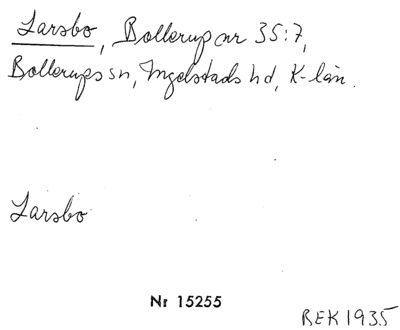 Larsbo, Bollerup nr 35:7,
Bollerups sn, Ingelstads hd, K-län.
Larsbo
Nr 15255
BEK 1935